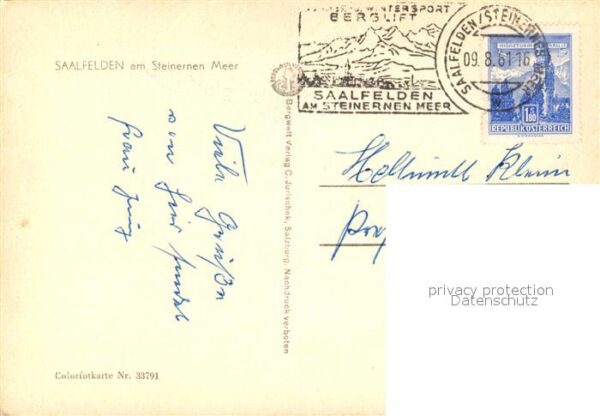 SAALFELDEN am Steinernen Meer
WINTERSPORT
BERGLIFT
SAALFELDEN
AM STEINERNEN MEER
SAALFELDEN/STEINERNES MEER
09.8.61-16
1.80
REPUBLIK ÖSTERREICH
Viele Grüße
von hier sendet
Frau
Bergwelt Verlag C. Jurischek, Salzburg. Nachdruck verboten
Hellmuth Klein
privacy protection
Datenschutz
Colorfotkarte Nr. 33791